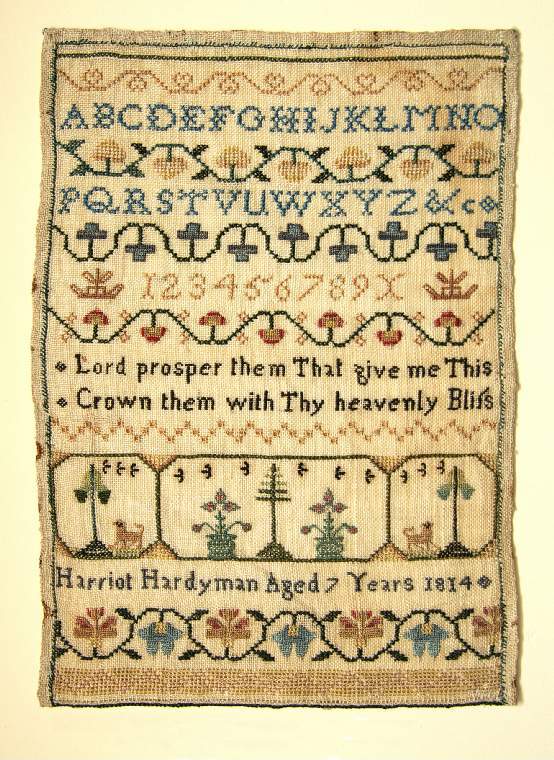 ABCDEFGHIJKLMNO
PQRSTVUWXYZ&c
123456789X
Lord prosper them That give me This
Crown them with Thy heavenly Bliſs
Harriot Hardyman Aged 7 Years 1814